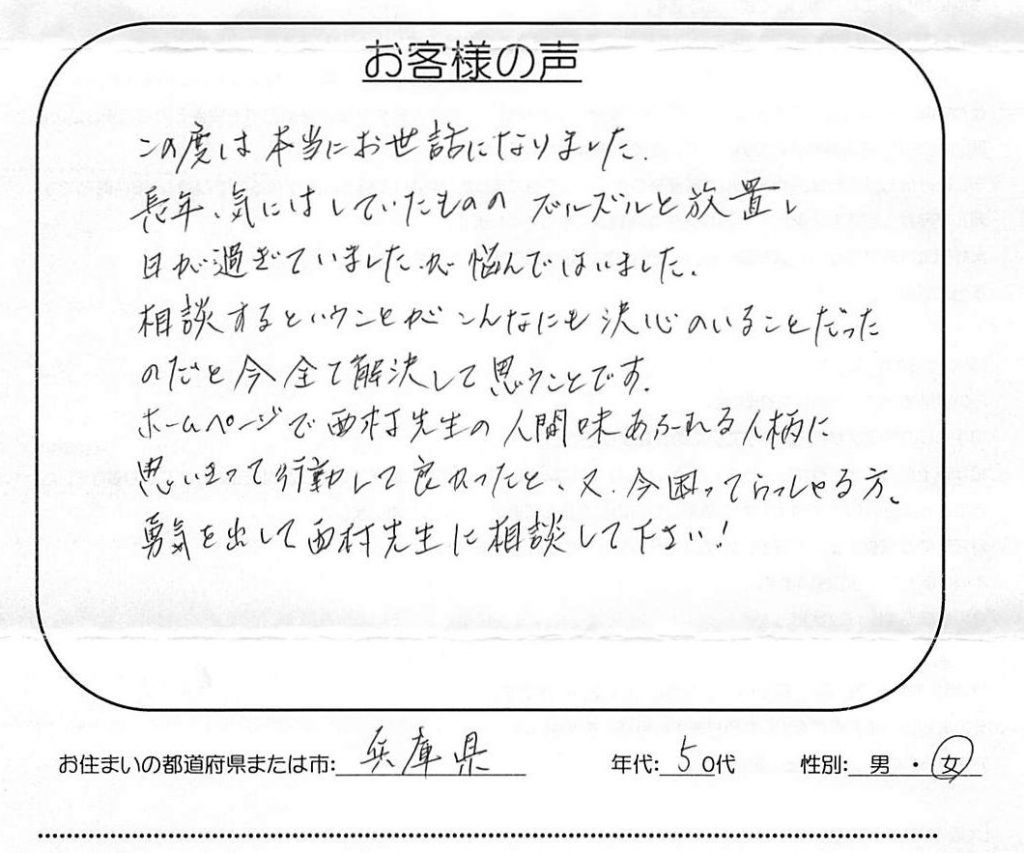 お客様の声
この度は本当にお世話になりました.
長年、気にはしていたもののズルズルと放置し
日が過ぎていました.が悩んではいました.
相談するということがこんなにも決心のいることだった
のだと今全て解決して思うことです.
ホームページで西村先生の人間味あふれる人柄に
思いきって行動して良かったと、又.今困ってらっしゃる方、
勇気を出して西村先生に相談して下さい!
お住まいの都道府県または市:兵庫県 年代:50代 性別:男・女